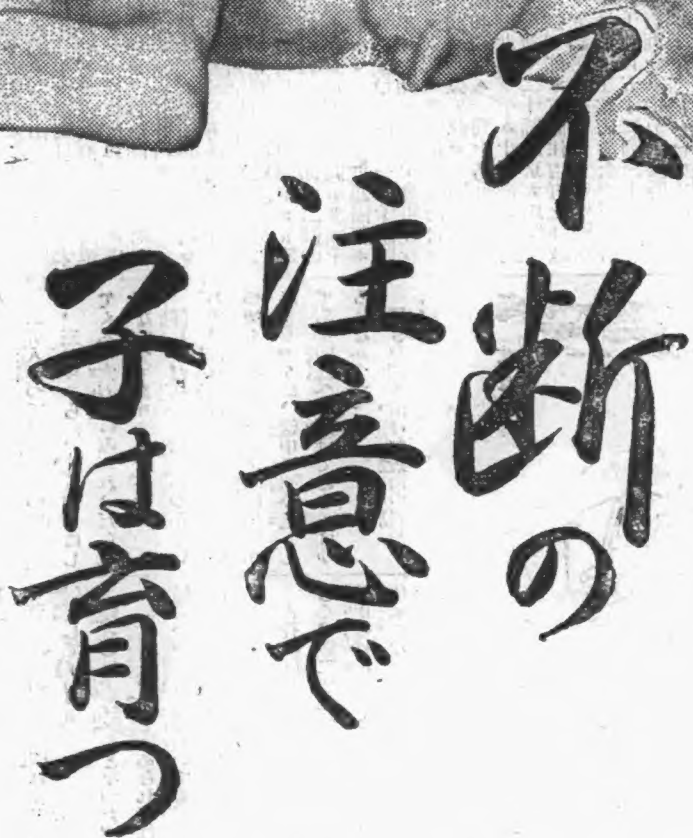 不断の
注意で
子は育つ